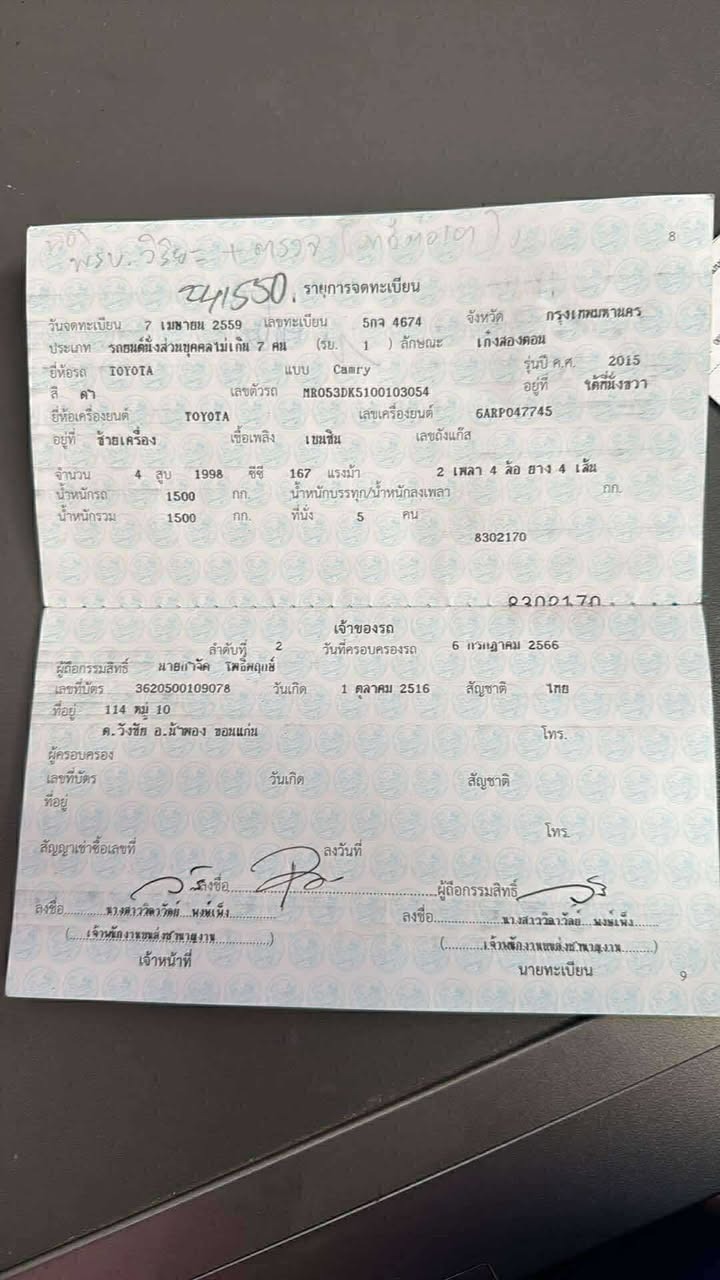 8
พรบ. วิริยะ + ตรวจ
241550.
รายการจดทะเบียน
วันจดทะเบียน 7 เมษายน 2559 เลขทะเบียน 5กจ 4674 จังหวัด กรุงเทพมหานคร
ประเภท รถยนต์นั่งส่วนบุคคลไม่เกิน 7 คน (รย. 1 ) ลักษณะ เก๋งสองตอน
ยี่ห้อรถ TOYOTA แบบ Camry รุ่นปี ค.ศ. 2015
สี ดำ เลขตัวรถ MR053DK5100103054 อยู่ที่ ใต้ที่นั่งขวา
ยี่ห้อเครื่องยนต์ TOYOTA เลขเครื่องยนต์ 6ARP047745
อยู่ที่ ซ้ายเครื่อง เชื้อเพลิง เบนซิน เลขถังแก๊ส
จำนวน 4 สูบ 1998 ซีซี 167 แรงม้า 2 เพลา 4 ล้อ ยาง 4 เส้น
น้ำหนักรถ 1500 กก. น้ำหนักบรรทุก/น้ำหนักลงเพลา กก.
น้ำหนักรวม 1500 กก. ที่นั่ง 5 คน
8302170
8302170
เจ้าของรถ
ลำดับที่ 2 วันที่ครอบครองรถ 6 กรกฎาคม 2566
ผู้ถือกรรมสิทธิ์ นายกำจัด โพธิ์พฤกษ์
เลขที่บัตร 3620500109078 วันเกิด 1 ตุลาคม 2516 สัญชาติ ไทย
ที่อยู่ 114 หมู่ 10
ต.วังชัย อ.น้ำพอง ขอนแก่น โทร.
ผู้ครอบครอง
เลขที่บัตร วันเกิด สัญชาติ
ที่อยู่
โทร.
สัญญาเช่าซื้อเลขที่ ลงวันที่
ลงชื่อ ผู้ถือกรรมสิทธิ์
ลงชื่อ นางสาววิดาวัลย์ พงษ์เพ็ง ลงชื่อ นางสาววิดาวัลย์ พงษ์เพ็ง
(เจ้าพนักงานขนส่งชำนาญงาน) (เจ้าพนักงานขนส่งชำนาญงาน)
เจ้าหน้าที่ นายทะเบียน
9